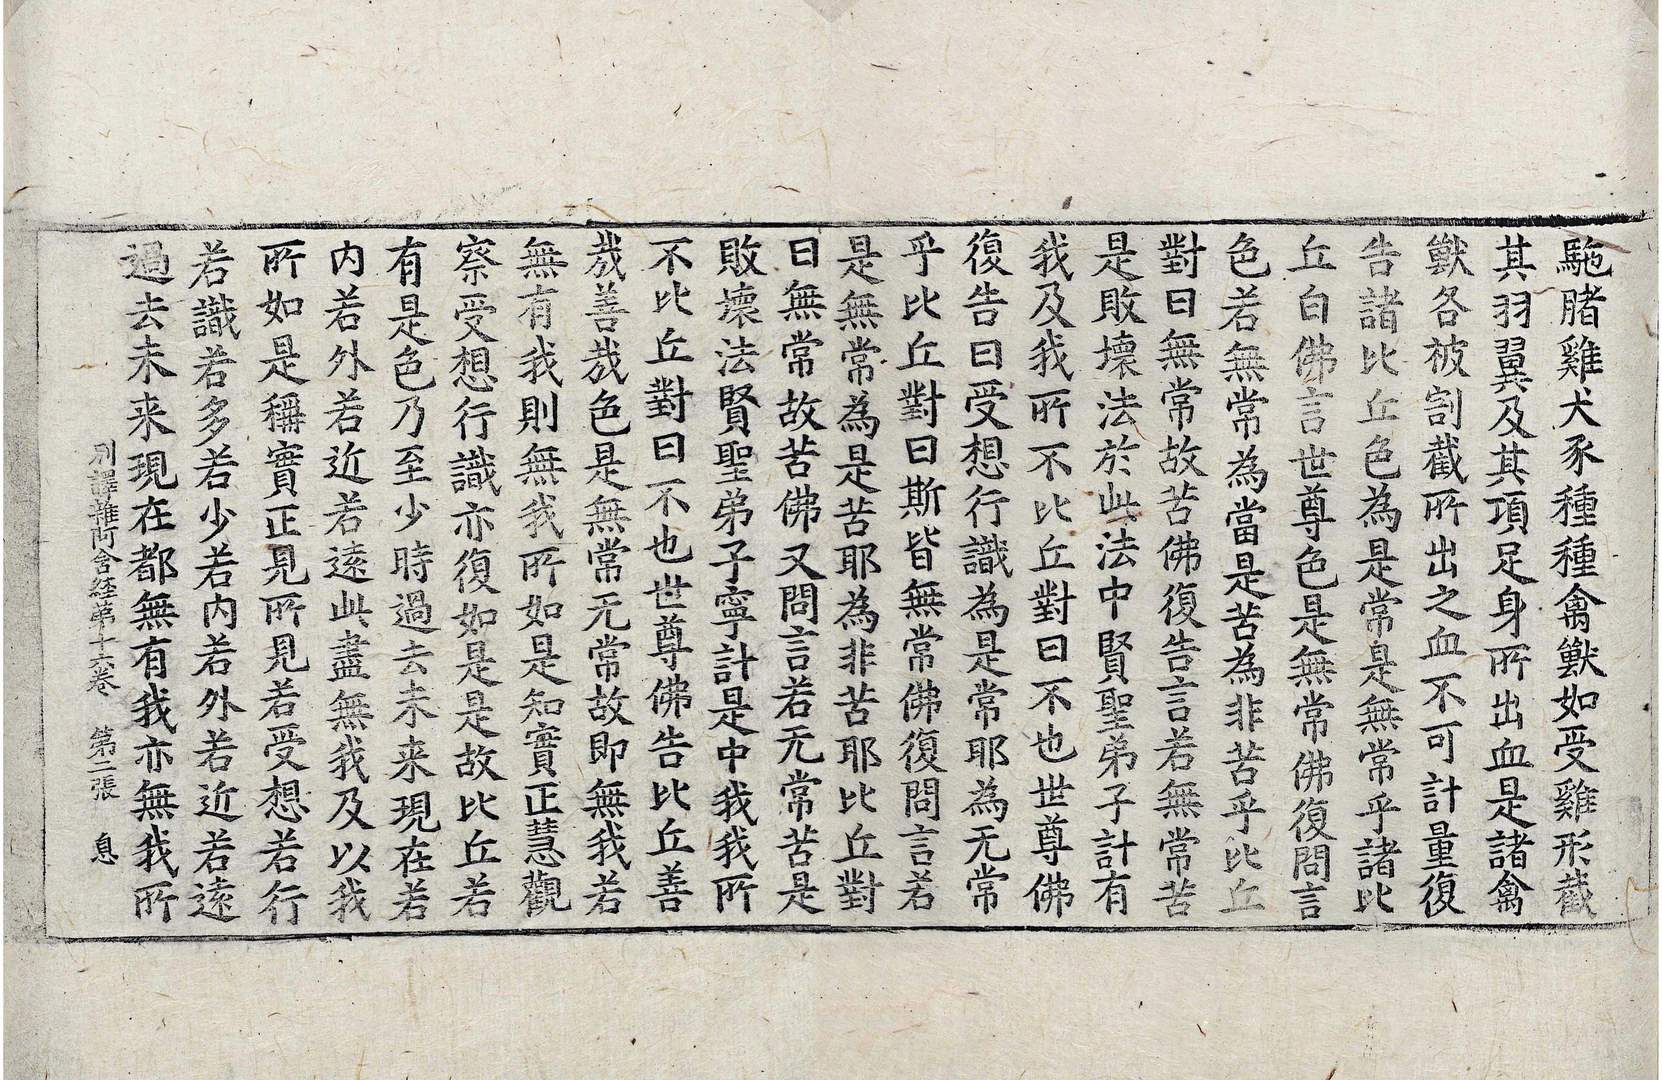 駞腤雞犬豕種種禽獸如受雞形截
其羽翼及其項足身所出血是諸禽
獸各被割截所出之血不可計量復
告諸比丘色為是常是無常乎諸比
丘白佛言世尊色是無常佛復問言
色若無常為當是苦為非苦乎比丘
對曰無常故苦佛復告言若無常苦
是敗壞法於此法中賢聖弟子計有
我及我所不比丘對曰不也世尊佛
復告曰受想行識為是常耶為无常
乎比丘對曰斯皆無常佛復問言若
是無常為是苦耶為非苦耶比丘對
曰無常故苦佛又問言若无常苦是
敗壞法賢聖弟子寧計是中我我所
不比丘對曰不也世尊佛告比丘善
㢤善㢤色是無常无常故即無我若
無有我則無我所如是知實正慧觀
察受想行識亦復如是是故比丘若
有是色乃至少時過去未来現在若
内若外若近若遠此盡無我及以我
所如是稱實正見所見若受想若行
若識若多若少若内若外若近若遠
過去未来現在都無有我亦無我所
別譯雜阿含経第十六卷　第二張　息